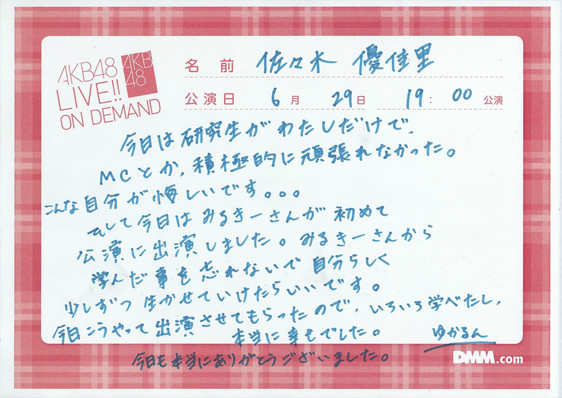 AKB48
LIVE!!
ON DEMAND
AKB
48
名前 佐々木 優佳里
公演日 6月 29日 19:00 公演
今日は研究生がわたしだけで、
MCとか、積極的に頑張れなかった。
こんな自分が悔しいです。。。
そして今日はみるきーさんが初めて
公演に出演しました。みるきーさんから
学んだ事を忘れないで自分らしく
少しずつ生かせていけたらいいです。
今日こうやって出演させてもらったので、いろいろ学べたし、
本当に幸せでした。
ゆかるん
今日も本当にありがとうございました。
DMM.com